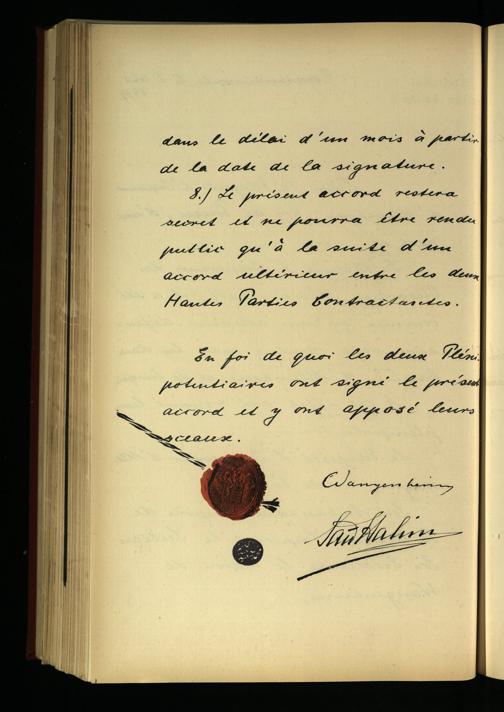 dans le délai d'un mois à partir
de la date de la signature.
8.) Le présent accord restera
secret et ne pourra être rendu
public qu'à la suite d'un
accord ultérieur entre les deux
Hautes Parties Contractantes.
En foi de quoi les deux Pléni
potentiaires ont signé le présent
accord et y ont apposé leurs
sceaux.
Wangenheim
Saïd Halim